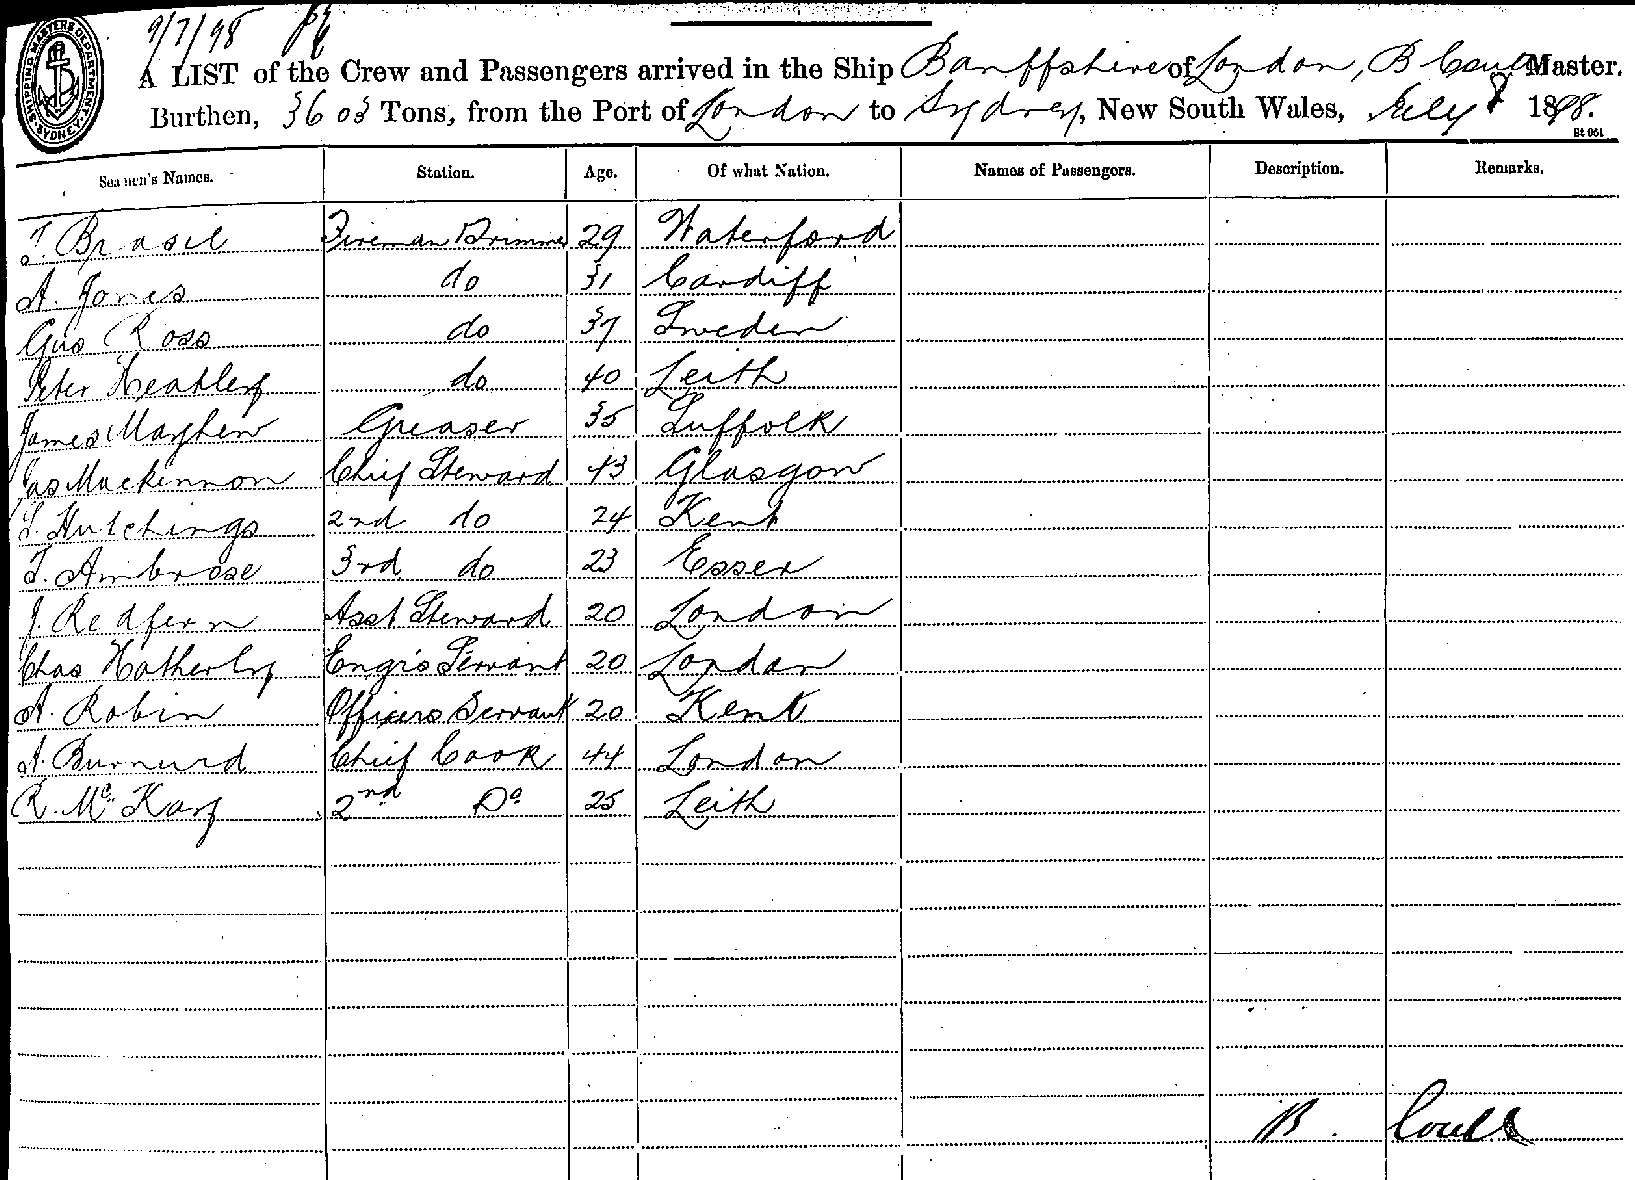 9/7/98
SHIPPING MASTERS DEPARTMENT
SYDNEY
A LIST of the Crew and Passengers arrived in the Ship Banffshire of London, B Coull Master.
Burthen, 3603 Tons, from the Port of London to Sydney, New South Wales, July 8 1898.
Seamen's Names. Station. Age. Of what Nation. Names of Passengers. Description. Remarks.
T. Brasil Fireman Trimmer 29 Waterford
A. Jones do 31 Cardiff
Gus Ross do 37 Sweden
Peter Heatley do 40 Leith
James Mayhew Greaser 35 Suffolk
Jas Mackinnon Chief Steward 43 Glasgow
S. Hutchings 2nd do 24 Kent
T. Ambrose 3rd do 23 Essex
J. Redfern Asst Steward 20 London
Chas Hatherly Engrs Servant 20 London
A. Robin Officers Servant 20 Kent
A. Burnurd Chief Cook 44 London
R. Mc Kay 2nd Do 25 Leith
B. Coull